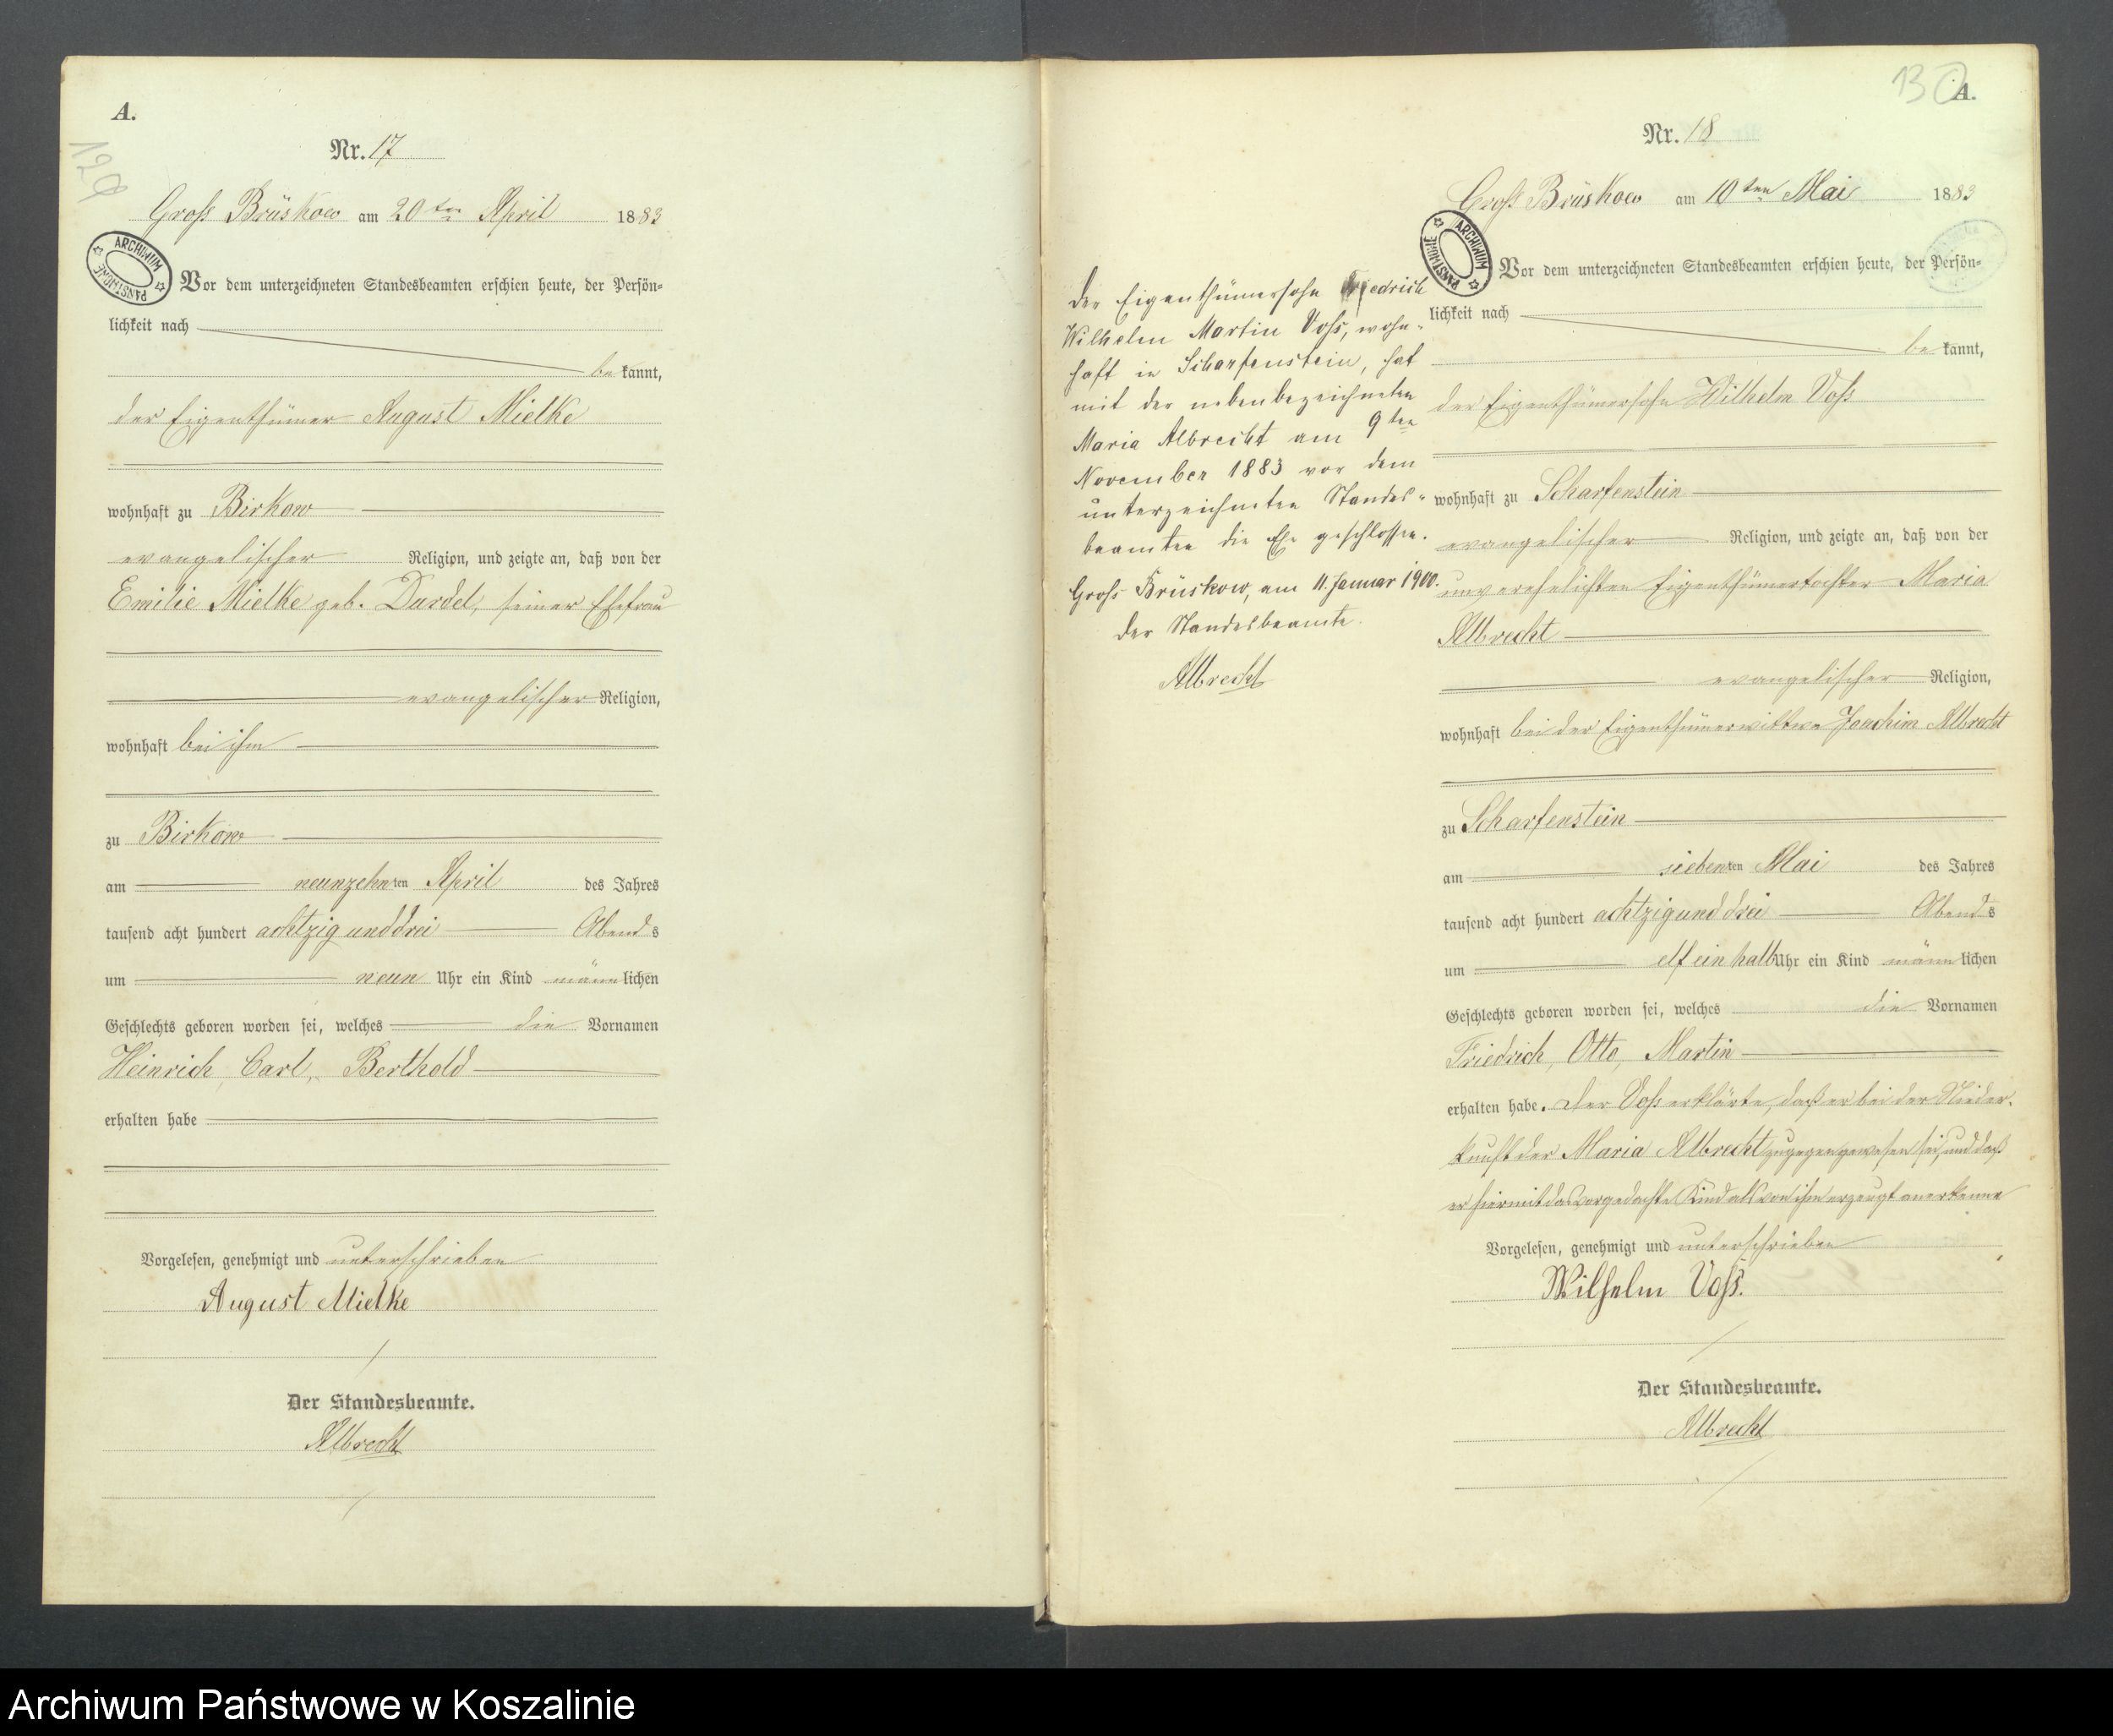 A.
129
Nr. 17
Groß Brüskow am 20ten April 1883
ARCHIWUM PAŃSTWOWE
Vor dem unterzeichneten Standesbeamten erschien heute, der Persön-
lichkeit nach
be kannt,
der Eigenthümer August Mielke
wohnhaft zu Birkow
evangelischer Religion, und zeigte an, daß von der
Emilie Mielke geb. Dardel, seiner Ehefrau
evangelischer Religion,
wohnhaft bei ihm
zu Birkow
am neunzehnten April des Jahres
tausend acht hundert achtzig und drei Abends
um neun Uhr ein Kind männlichen
Geschlechts geboren worden sei, welches die Vornamen
Heinrich, Carl, Berthold
erhalten habe
Vorgelesen, genehmigt und unterschrieben
August Mielke
Der Standesbeamte.
Albrecht
130
A.
Nr. 18
Groß Brüskow am 10ten Mai 1883
ARCHIWUM PAŃSTWOWE
Vor dem unterzeichneten Standesbeamten erschien heute, der Persön-
lichkeit nach
be kannt,
der Eigenthümersohn Wilhelm Voß
wohnhaft zu Scharfenstein
evangelischer Religion, und zeigte an, daß von der
unverehelichten Eigenthümertochter Maria
Albrecht
evangelischer Religion,
wohnhaft bei der Eigenthümerwittwe Joachim Albrecht
zu Scharfenstein
am siebenten Mai des Jahres
tausend acht hundert achtzig und drei Abends
um elf ein halb Uhr ein Kind männlichen
Geschlechts geboren worden sei, welches die Vornamen
Friedrich, Otto, Martin
erhalten habe. Der Voß erklärte, daß er bei der Nieder-
kunft der Maria Albrecht zugegen gewesen sei, und daß
er hiermit das vorgedachte Kind als von ihm erzeugt anerkenne
Vorgelesen, genehmigt und unterschrieben
Wilhelm Voß.
Der Standesbeamte.
Albrecht
Der Eigenthümersohn Friedrich
Wilhelm Martin Voß, wohn-
haft in Scharfenstein, hat
mit der nebenbezeichneten
Maria Albrecht am 9ten
November 1883 vor dem
unterzeichneten Standes-
beamten die Ehe geschlossen.
Groß Brüskow, am 11. Januar 1900.
Der Standesbeamte.
Albrecht
Archiwum Państwowe w Koszalinie